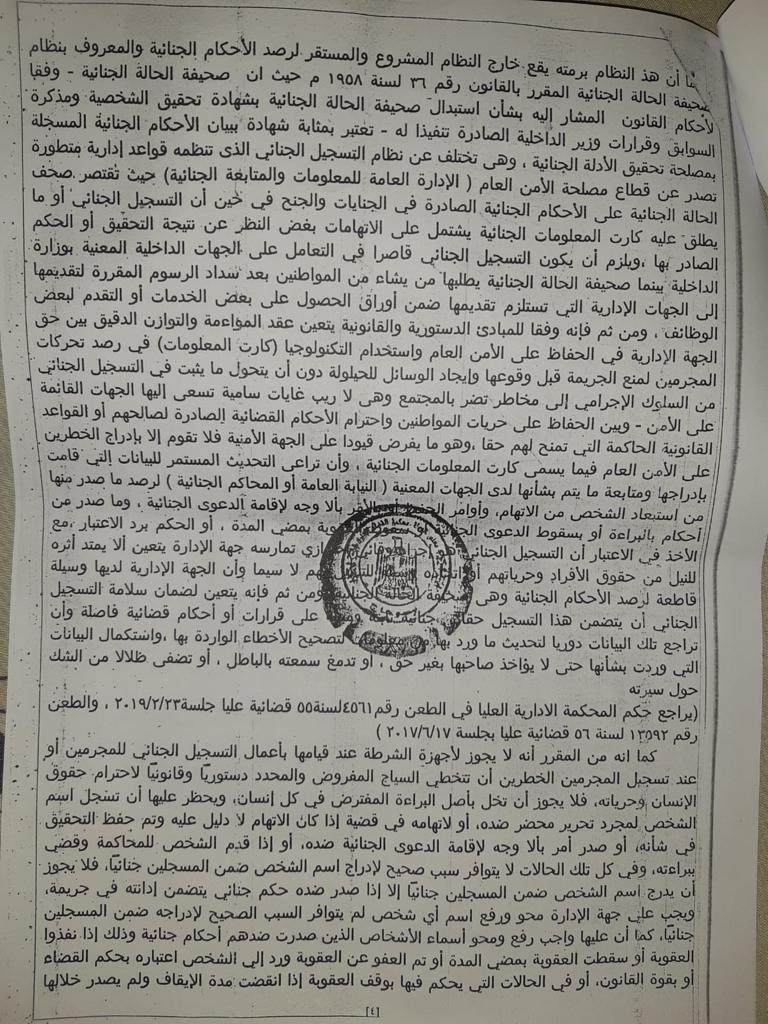 أن هذ النظام برمته يقع خارج النظام المشروع والمستقر لرصد الأحكام الجنائية والمعروف بنظام
صحيفة الحالة الجنائية المقرر بالقانون رقم ٣٦ لسنة ١٩٥٨ م حيث ان صحيفة الحالة الجنائية - وفقا
لأحكام القانون المشار إليه بشأن استبدال صحيفة الحالة الجنائية بشهادة تحقيق الشخصية ومذكرة
السوابق وقرارات وزير الداخلية الصادرة تنفيذا له - تعتبر بمثابة شهادة ببيان الأحكام الجنائية المسجلة
بمصلحة تحقيق الأدلة الجنائية ، وهى تختلف عن نظام التسجيل الجنائي الذى تنظمه قواعد إدارية متطورة
تصدر عن قطاع مصلحة الأمن العام ( الإدارة العامة للمعلومات والمتابعة الجنائية) حيث تقتصر صحف
الحالة الجنائية على الأحكام الجنائية الصادرة في الجنايات والجنح في حين أن التسجيل الجنائي أو ما
يطلق عليه كارت المعلومات الجنائية يشتمل على الاتهامات بغض النظر عن نتيجة التحقيق أو الحكم
الصادر بها ،ويلزم أن يكون التسجيل الجنائي قاصرا في التعامل على الجهات الداخلية المعنية بوزارة
الداخلية بينما صحيفة الحالة الجنائية يطلبها من يشاء من المواطنين بعد سداد الرسوم المقررة لتقديمها
إلى الجهات الإدارية التي تستلزم تقديمها ضمن أوراق الحصول على بعض الخدمات أو التقدم لبعض
الوظائف ، ومن ثم فإنه وفقا للمبادئ الدستورية والقانونية يتعين عقد المؤاءمة والتوازن الدقيق بين حق
الجهة الإدارية في الحفاظ على الأمن العام واستخدام التكنولوجيا (كارت المعلومات) في رصد تحركات
المجرمين لمنع الجريمة قبل وقوعها وإيجاد الوسائل للحيلولة دون أن يتحول ما يثبت في التسجيل الجنائي
من السلوك الإجرامي إلى مخاطر تضر بالمجتمع وهى لا ريب غايات سامية تسعى إليها الجهات القائمة
على الأمن - وبين الحفاظ على حريات المواطنين واحترام الأحكام القضائية الصادرة لصالحهم أو القواعد
القانونية الحاكمة التي تمنح لهم حقا ،وهو ما يفرض قيودا على الجهة الأمنية فلا تقوم إلا بإدراج الخطرين
على الأمن العام فيما يسمى كارت المعلومات الجنائية ، وأن تراعى التحديث المستمر للبيانات التي قامت
بإدراجها ومتابعة ما يتم بشأنها لدى الجهات المعنية ( النيابة العامة أو المحاكم الجنائية ) لرصد ما صدر منها
من استبعاد الشخص من الاتهام، وأوامر الحفظ أو الأمر بألا وجه لإقامة الدعوى الجنائية ، وما صدر من
أحكام بالبراءة أو بسقوط الدعوى الجنائية العقوبة بمضي المدة ، أو الحكم برد الاعتبار ،مع
الأخذ في الاعتبار أن التسجيل الجنائي هو إجراء وقائي احترازي تمارسه جهة الإدارة يتعين ألا يمتد أثره
للنيل من حقوق الأفراد وحرياتهم أو لا سيما وأن الجهة الإدارية لديها وسيلة
قاطعة لرصد الأحكام الجنائية وهى صحيفة الحالة الجنائية ومن ثم فإنه يتعين لضمان سلامة التسجيل
الجنائي أن يتضمن هذا التسجيل حقائق جنائية ثابتة على قرارات أو أحكام قضائية فاصلة وأن
تراجع تلك البيانات دوريا لتحديث ما ورد بها من معلومات لتصحيح الأخطاء الواردة بها ،واستكمال البيانات
التي وردت بشأنها حتى لا يؤاخذ صاحبها بغير حق ، أو تدمغ سمعته بالباطل ، أو تضفى ظلالا من الشك
حول سيرته
(يراجع حكم المحكمة الادارية العليا في الطعن رقم ٤٥٦١لسنة ٥٥ قضائية عليا جلسة ٢٠١٩/٢/٢٣ ، والطعن
رقم ١٣٥٩٢ لسنة ٥٦ قضائية عليا بجلسة ٢٠١٧/٦/١٧ )
كما انه من المقرر أنه لا يجوز لأجهزة الشرطة عند قيامها بأعمال التسجيل الجنائي للمجرمين أو
عند تسجيل المجرمين الخطرين أن تتخطي السياج المفروض والمحدد دستوريًا وقانونيًا لاحترام حقوق
الإنسان وحرياته، فلا يجوز أن تخل بأصل البراءة المفترض في كل إنسان، ويحظر عليها أن تسجل اسم
الشخص لمجرد تحرير محضر ضده، أو لاتهامه في قضية إذا كان الاتهام لا دليل عليه وتم حفظ التحقيق
في شأنه، أو صدر أمر بألا وجه لإقامة الدعوى الجنائية ضده، أو إذا قدم الشخص للمحاكمة وقضي
ببراءته، وفي كل تلك الحالات لا يتوافر سبب صحيح لإدراج اسم الشخص ضمن المسجلين جنائيًا، فلا يجوز
أن يدرج اسم الشخص ضمن المسجلين جنائيًا إلا إذا صدر ضده حكم جنائي يتضمن إدانته في جريمة،
ويجب علي جهة الإدارة محو ورفع اسم أي شخص لم يتوافر السبب الصحيح لإدراجه ضمن المسجلين
جنائيًا، كما أن عليها واجب رفع ومحو أسماء الأشخاص الذين صدرت ضدهم أحكام جنائية وذلك إذا نفذوا
العقوبة أو سقطت العقوبة بمضي المدة أو تم العفو عن العقوبة ورد إلي الشخص اعتباره بحكم القضاء
أو بقوة القانون، أو في الحالات التي يحكم فيها بوقف العقوبة إذا انقضت مدة الإيقاف ولم يصدر خلالها
[٤]